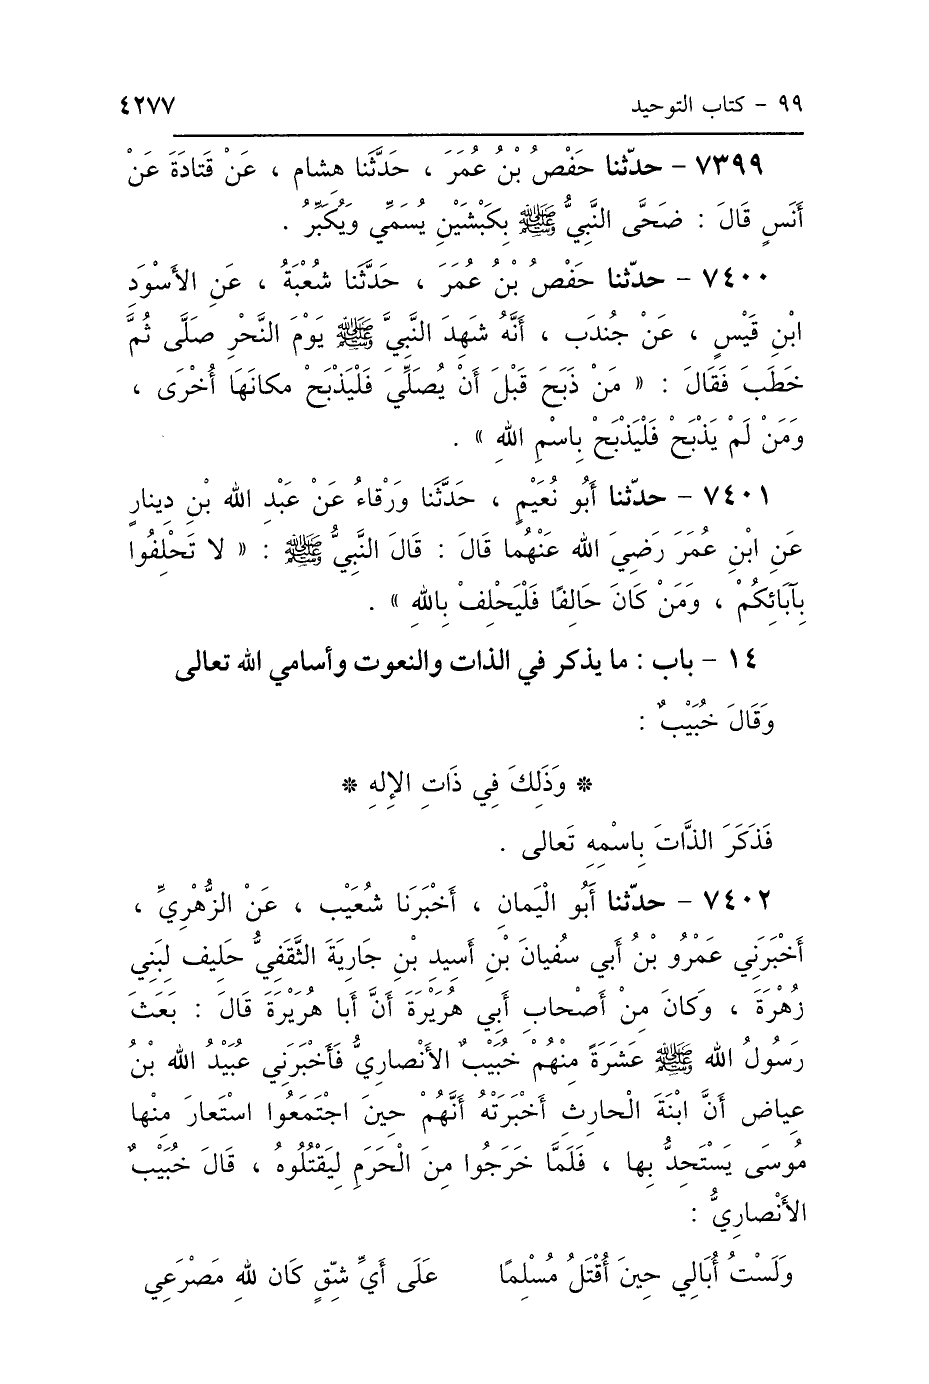 ٩٩ - كتاب التوحيد ٤٢٧٧
٧٣٩٩ - حدّثنا حَفْصُ بْنُ عُمَرَ ، حَدَّثَنا هِشام ، عَنْ قَتادَةَ عَنْ
أَنَسٍ قَالَ : ضَحَّى النَّبِيُّ ﷺ بِكَبْشَيْنِ يُسَمِّي وَيُكَبِّرُ .
٧٤٠٠ - حدّثنا حَفْصُ بْنُ عُمَرَ ، حَدَّثَنا شُعْبَةُ ، عَنِ الأَسْوَدِ
ابْنِ قَيْسٍ ، عَنْ جُندَب ، أَنَّهُ شَهِدَ النَّبِيَّ ﷺ يَوْمَ النَّحْرِ صَلَّى ثُمَّ
خَطَبَ فَقَالَ : « مَنْ ذَبَحَ قَبْلَ أَنْ يُصَلِّيَ فَلْيَذْبَحْ مكانَهَا أُخْرَى ،
وَمَنْ لَمْ يَذْبَحْ فَلْيَذْبَحْ بِاسْمِ اللهِ » .
٧٤٠١ - حدّثنا أَبُو نُعَيْمٍ ، حَدَّثَنا وَرْقاءُ عَنْ عَبْدِ الله بْنِ دِينارٍ
عَنِ ابْنِ عُمَرَ رَضِيَ الله عَنْهُما قَالَ : قَالَ النَّبِيُّ ﷺ : « لا تَحْلِفُوا
بِآبَائِكُمْ ، وَمَنْ كَانَ حَالِفًا فَلْيَحْلِفْ بِاللهِ » .
١٤ - باب : ما يذكر في الذات والنعوت وأسامي الله تعالى
وَقَالَ خُبَيْبٌ :
* وَذَلِكَ فِي ذَاتِ الإِلهِ *
فَذَكَرَ الذَّاتَ بِاسْمِهِ تَعالى .
٧٤٠٢ - حدّثنا أَبُو الْيَمانِ ، أَخْبَرَنا شُعَيْب ، عَنْ الزُّهْرِيِّ ،
أَخْبَرَنِي عَمْرُو بْنُ أَبي سفْيانَ بْنِ أَسِيدِ بْنِ جَارِيَةَ الثَّقَفِيُّ حَلِيف لِبَنِي
زُهْرَةَ ، وَكانَ مِنْ أَصْحابِ أَبِي هُرَيْرَةَ أَنَّ أَبا هُرَيْرَةَ قَالَ : بَعَثَ
رَسُولُ الله ﷺ عَشَرَةً مِنْهُمْ خُبَيْبٌ الأَنْصارِيُّ فَأَخْبَرَنِي عبَيْدُ الله بْنُ
عِياض أَنَّ ابْنَةَ الْحارِث أَخْبَرَتْهُ أَنَّهُمْ حِينَ اجْتَمَعُوا اسْتَعارَ مِنْها
مُوسَى يَسْتَحِدُّ بِها ، فَلَمَّا خَرَجُوا مِنَ الْحَرَمِ لِيَقْتُلُوهُ ، قَالَ خُبَيْبٌ
الأَنْصارِيُّ :
وَلَسْتُ أُبَالِي حِينَ أُقْتَلُ مُسْلِمًا عَلَى أَيِّ شِّقٍ كَان للهِ مَصْرَعِي